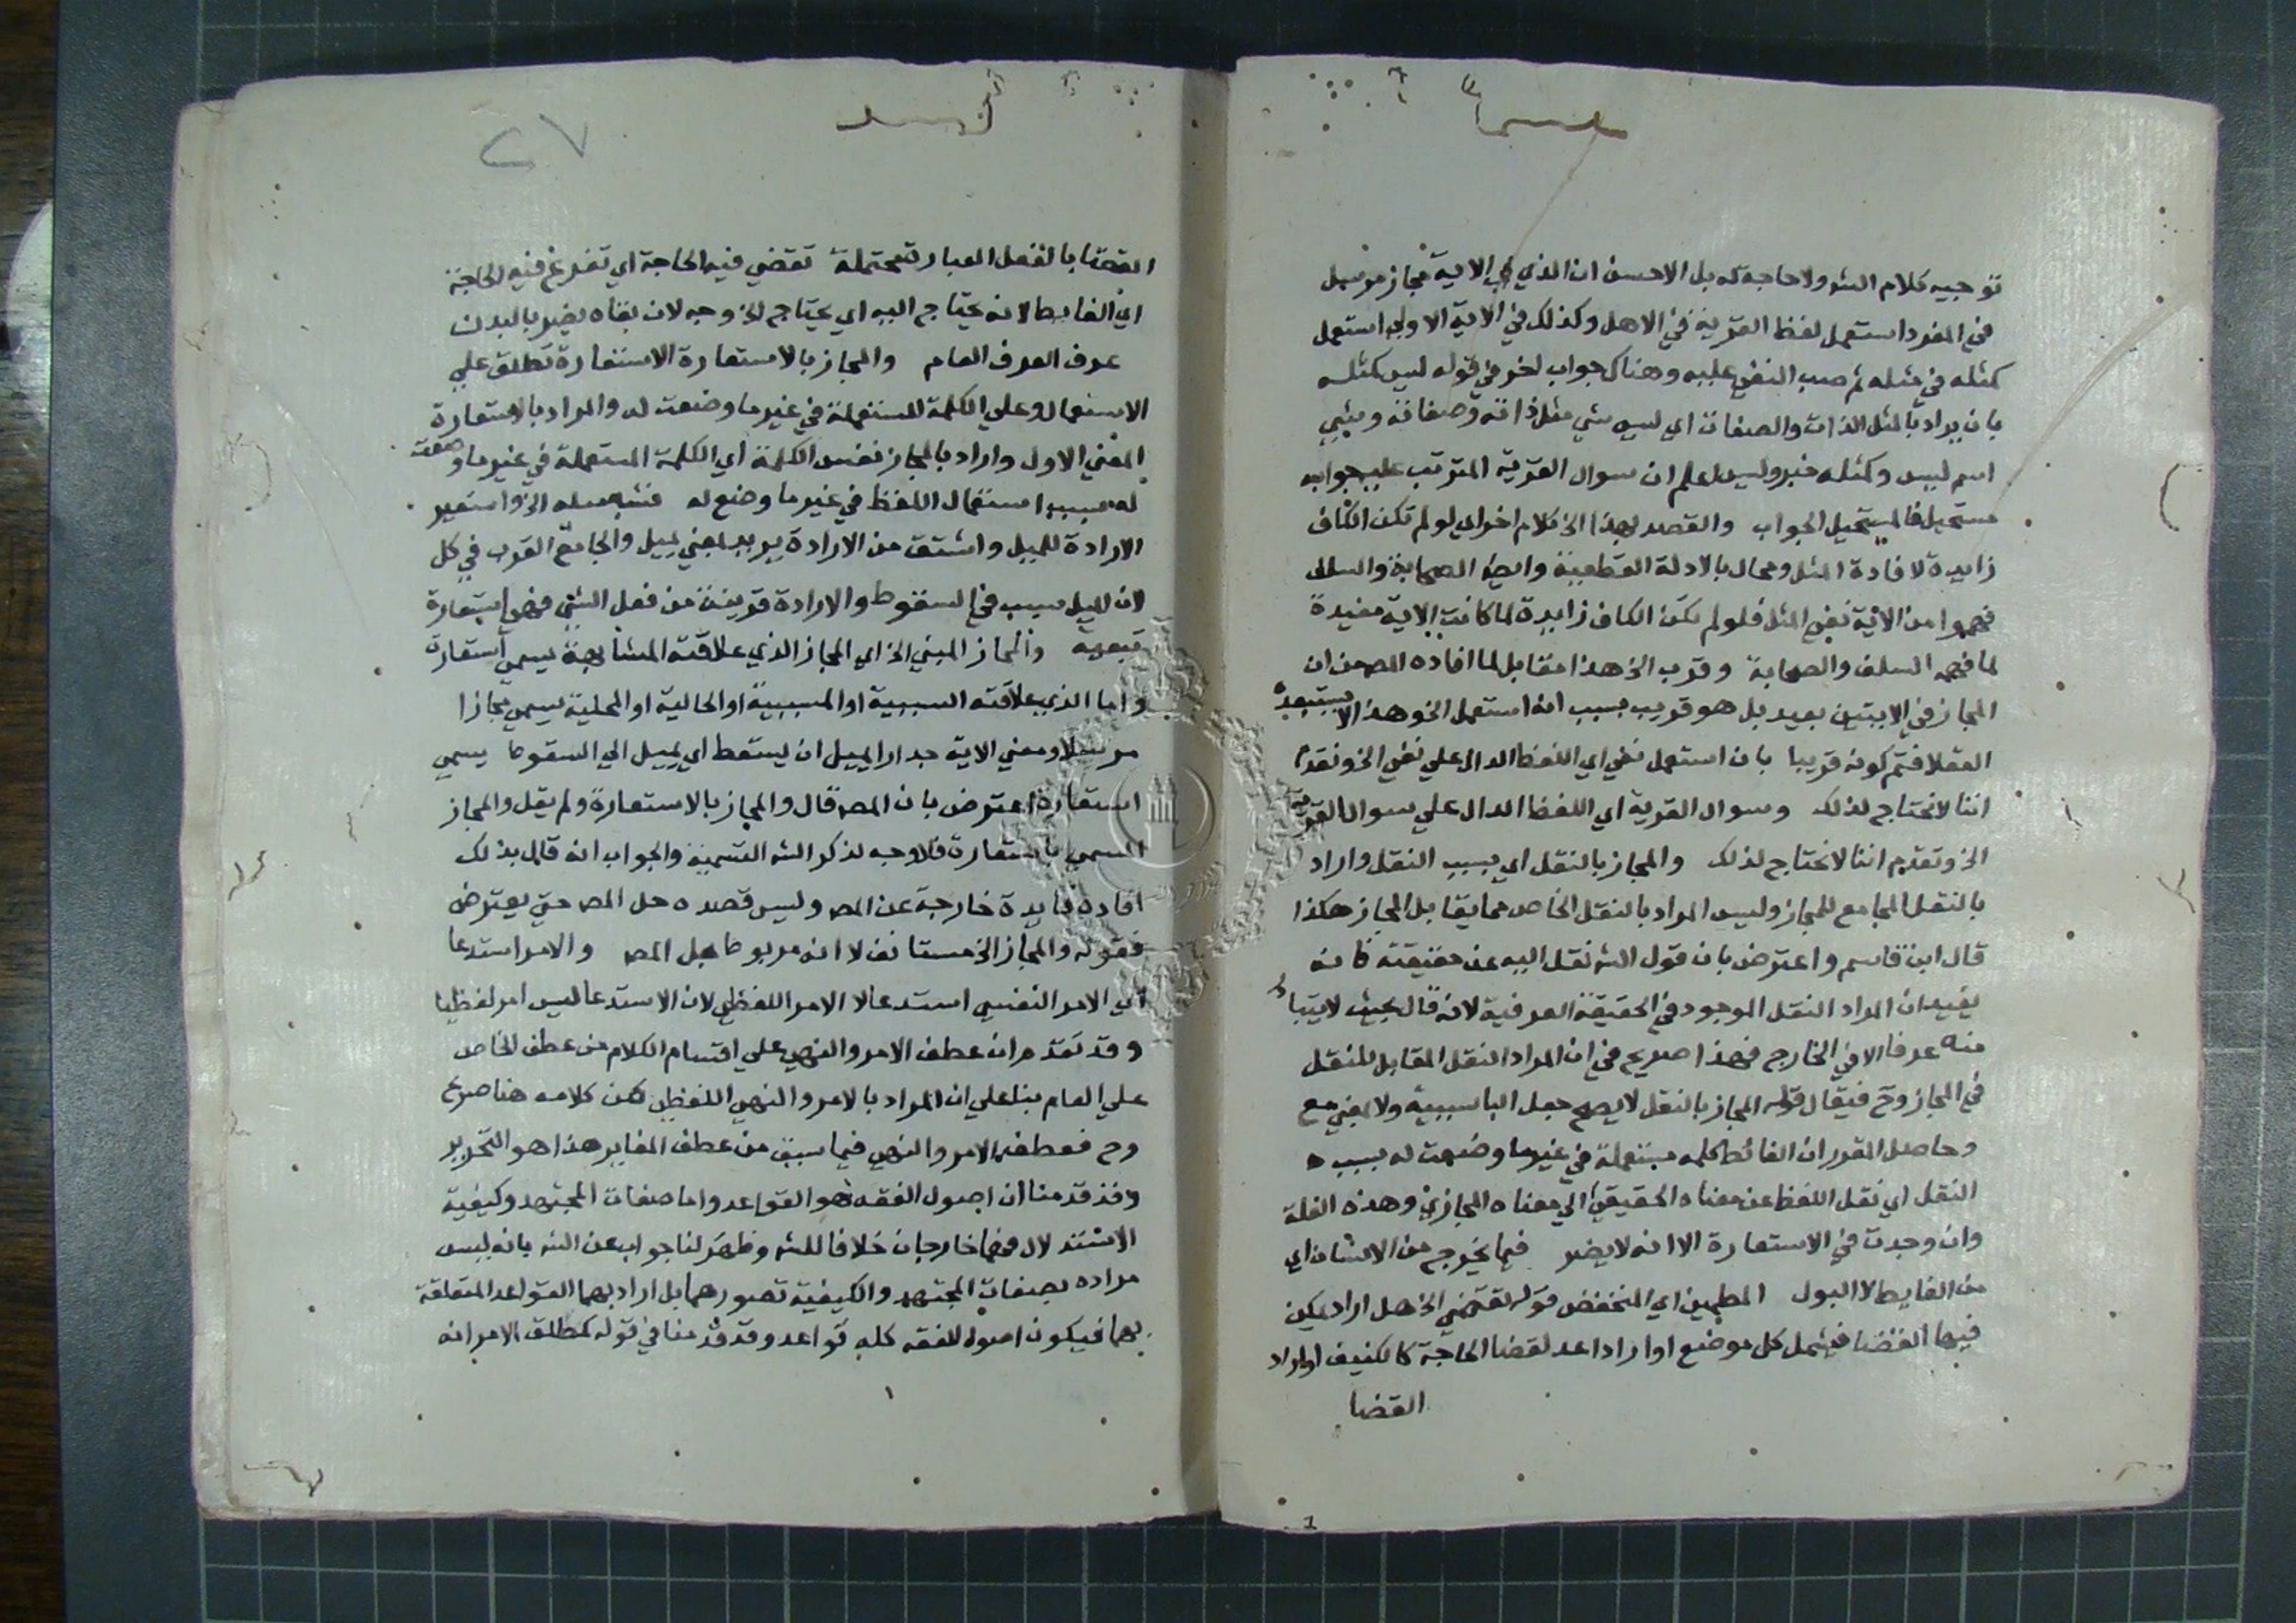 توجيه كلام الشه ولا حاجة له بل الاحسن ان الذي في الاية مجاز مرسل
في المفرد استعمل لفظ القرية في الاهل وكذلك في الاية الاولي استعمل
كمثله في مثله ثم صب النفي عليه وهناك جواب اخر في قوله ليس كمثله
بان يراد بالمثل الذات والصفات اي ليس شي مثل ذاته وصفاته وشي
اسم ليس وكمثله خبر وليس اعلم ان سوال القرية المترتب عليه جواب
مستحيل فالمستحيل الجواب والقصد بهذا الخ كلام اخر اي لو لم تكن الكاف
زايدة لافادة المثل ومحال بالادلة القطعية وايضا الصحابة والسلف
فهموا من الاية نفي المثل فلو لم تكن الكاف زايدة لما كانت الاية مفيدة
لما فهمه السلف والصحابة وقرب الخ هذا مقابل لما افاده المص من ان
المجاز في الايتين بعيد بل هو قريب بسبب انه استعمل الخ وهذا لا يستبعده
العقلا فتم كونه قريبا بان استعمل نفي اي اللفظ الدال علي نفي الخ وتقدم
اننا لا نحتاج لذلك وسوال القرية اي اللفظ الدال علي سوال القرية
الخ وتقدم اننا لا نحتاج لذلك والمجاز بالنقل اي بسبب النقل واراد
بالنقل الجامع للمجاز وليس المراد بالنقل الخاص مما يقابل المجاز هكذا
قال ابن قاسم واعترض بان قول الشه نقل اليه عن حقيقته كانه
يفيد ان المراد النقل الموجود في الحقيقة العرفية لانه قال بحيث لا يتبادر
منه عرفا الا في الخارج فهذا صريح في ان المراد النقل المقابل للنقل
في المجاز وح فيقال قوله المجاز بالنقل لا يصح جعل البا سببية ولا بمعني مع
وحاصل المقرر ان الغائط كلمه مستعملة في غير ما وضعت له بسبب
النقل اي نقل اللفظ عن معناه الحقيقي الي معناه المجازي وهذه العلة
وان وجدت في الاستعارة الا انه لا يضر فيما يخرج من الانسان اي
من الغايط لا البول المطمين اي المنخفض قوله تقضي الخ هل اراد يمكن
فيها القضا فيشمل كل موضع او اراد اعد لقضا الحاجة كالكنيف او اراد
القضا
٢٧
القضا بالفعل العبارة محتملة تقضي فيه الحاجة اي تفرغ فيه الحاجة
اي الغايط لانه يحتاج اليه اي يحتاج لخروجه لان بقاه يضر بالبدن
عرف العرف العام والمجاز بالاستعارة الاستعارة تطلق علي
الاستعمال وعلي الكلمة المستعملة في غير ما وضعت له والمراد بالاستعارة
المعني الاول واراد بالمجاز نفس الكلمة اي الكلمة المستعملة في غير ما وضعت
له بسبب استعمال اللفظ في غير ما وضع له فشبه ميله الخ واستعير
الارادة للميل واشتق من الارادة يريد بمعني يميل والجامع القرب في كل
لان الميل سبب في السقوط والارادة قريبة من فعل الشي فهي استعارة
تبعية والمجاز المبني الخ اي المجاز الذي علاقته المشابهة يسمي استعارة
واما الذي علاقته السببية او المسببية او الحالية او المحلية يسمي مجازا
مرسلا ومعني الاية جدارا يميل ان يسقط اي يميل الي السقوط يسمي
استعارة اعترض بان المص قال والمجاز بالاستعارة ولم يقل والمجاز
المسمي باستعارة فلا وجه لذكر الشه التسمية والجواب انه قال بذلك
افادة فايدة خارجة عن المص وليس قصده حل المص حتي يعترض
فقوله والمجاز الخ مستانف لا انه مربوط بحل المص والامر استدعا
اي الامر النفسي استدعا لا الامر اللفظي لان الاستدعا ليس امر لفظيا
وقد تقدم ان عطف الامر والنهي علي اقسام الكلام من عطف الخاص
علي العام بنا علي ان المراد بالامر والنهي اللفظي لكن كلامه هنا صريح
وح فعطف الامر والنهي فيما سبق من عطف المغاير هذا هو التحرير
وقد قدمنا ان اصول الفقه هو القواعد واما صفات المجتهد وكيفية
الاستدلال فهما خارجان خلافا للشه وظهر لنا جواب عن الشه بانه ليس
مراده بصفات المجتهد والكيفية تصورهما بل اراد بهما القواعد المتعلقة
بهما فيكون اصول الفقه كله قواعد وقد قدمنا في قوله كمطلق الامر انه